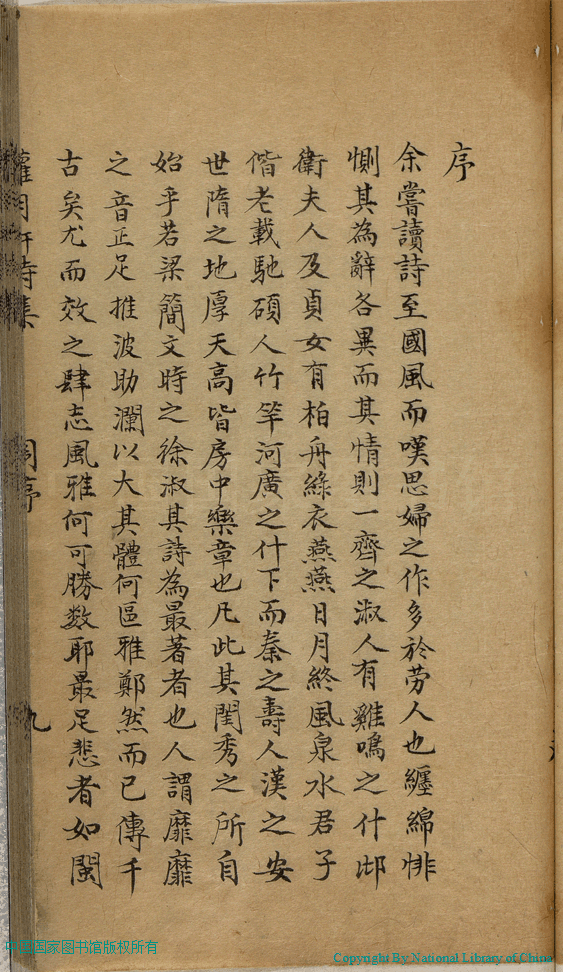 序
余嘗讀詩至國風而嘆思婦之作多於勞人也纏綿悱
惻其為辭各異而其情則一齊之淑人有雞鳴之什邶
衛夫人及貞女有柏舟綠衣燕燕日月終風泉水君子
偕老載馳碩人竹竿河廣之什下而秦之壽人漢之安
世隋之地厚天高皆房中樂章也凡此其閨秀之所自
始乎若梁簡文時之徐淑其詩為最著者也人謂靡靡
之音正足推波助瀾以大其體何區雅鄭然而已傳千
古矣尤而效之肆志風雅何可勝数耶最足悲者如閩
詩集
序
九
中国国家图书馆版权所有
Copyright By National Library of China